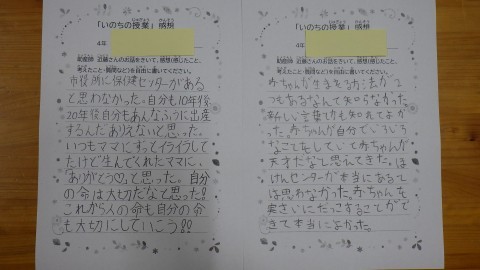 「いのちの授業」感想
4年
助産師 近藤さんのお話をきいて、感想(感じたこと、
考えたこと・質問など)を自由に書いてください。
市役所に保健センターがある
と思わなかった。自分も10年後
20年後自分もあんなふうに出産
するんだありえないと思った。
いつもママにずっとイライラして
たけど生んでくれたママに、
「ありがとう♡」と思った。自分
の命は大切だなと思った!!
これから人の命も自分の命
も大切にしていこう!!
「いのちの授業」感想
4年
助産師 近藤さんのお話をきいて、感想(感じたこと、
考えたこと・質問など)を自由に書いてください。
赤ちゃんが生まれる方法が2
つもあるなんて知らなかった。
新しい言葉も知れてよか
った。赤ちゃんが自分でいろいろ
なことをしていて赤ちゃんが
天才だなって思えてきた。ほ
けんセンターが本当にあって
は思わなかった。赤ちゃんを
実さいにだっこすることがで
きて本当によかった。